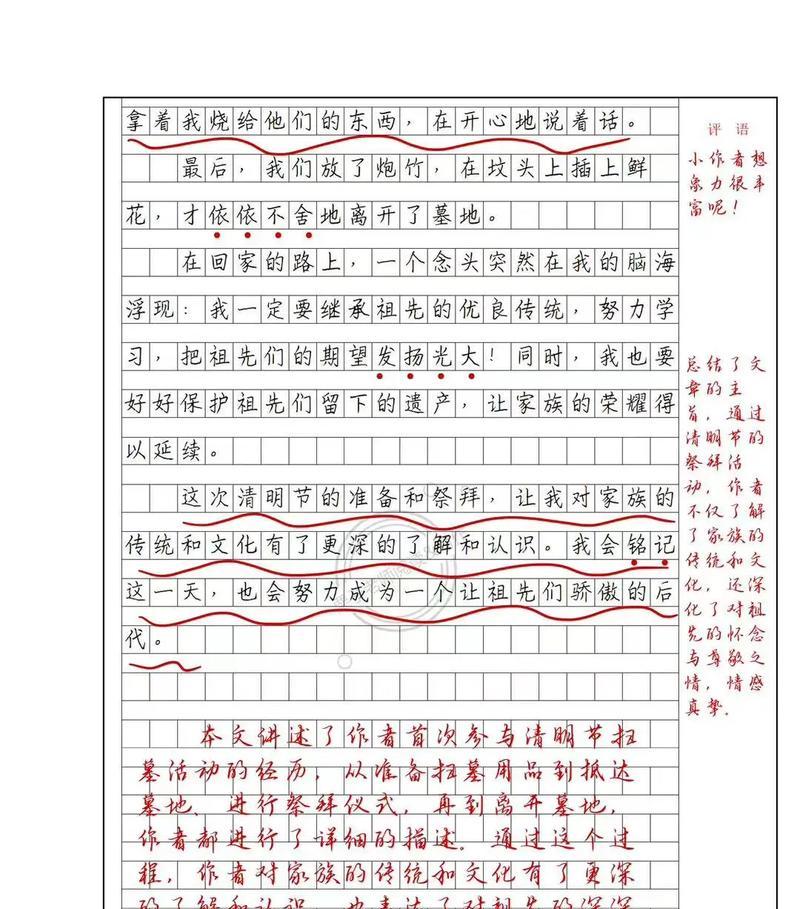 拿着我烧给他们的东西，在开心地说着话。
最后，我们放了炮竹，在坟头上插上鲜
花，才依依不舍地离开了墓地。
在回家的路上，一个念头突然在我的脑海
浮现：我一定要继承祖先的优良传统，努力学
习，把祖先们的期望发扬光大！同时，我也要
好好保护祖先们留下的遗产，让家族的荣耀得
以延续。
这次清明节的准备和祭拜，让我对家族的
传统和文化有了更深的了解和认识。我会铭记
这一天，也会努力成为一个让祖先们骄傲的后
代。
本文讲述了作者首次参与清明节扫
墓活动的经历，从准备扫墓用品到抵达
墓地、进行祭拜仪式，再到离开墓地，
作者都进行了详细的描述。通过这个过
程，作者对家族的传统和文化有了更深
的了解和认识，也表达了对祖先的深深
评语
小作者想
象力很丰
富呢！
总结了文
章的主
旨，通过
清明节的
祭拜活
动，作者
不仅了解
了家族的
传统和文
化，还深
化了对祖
先的怀念
与尊敬之
情，情感
真挚。